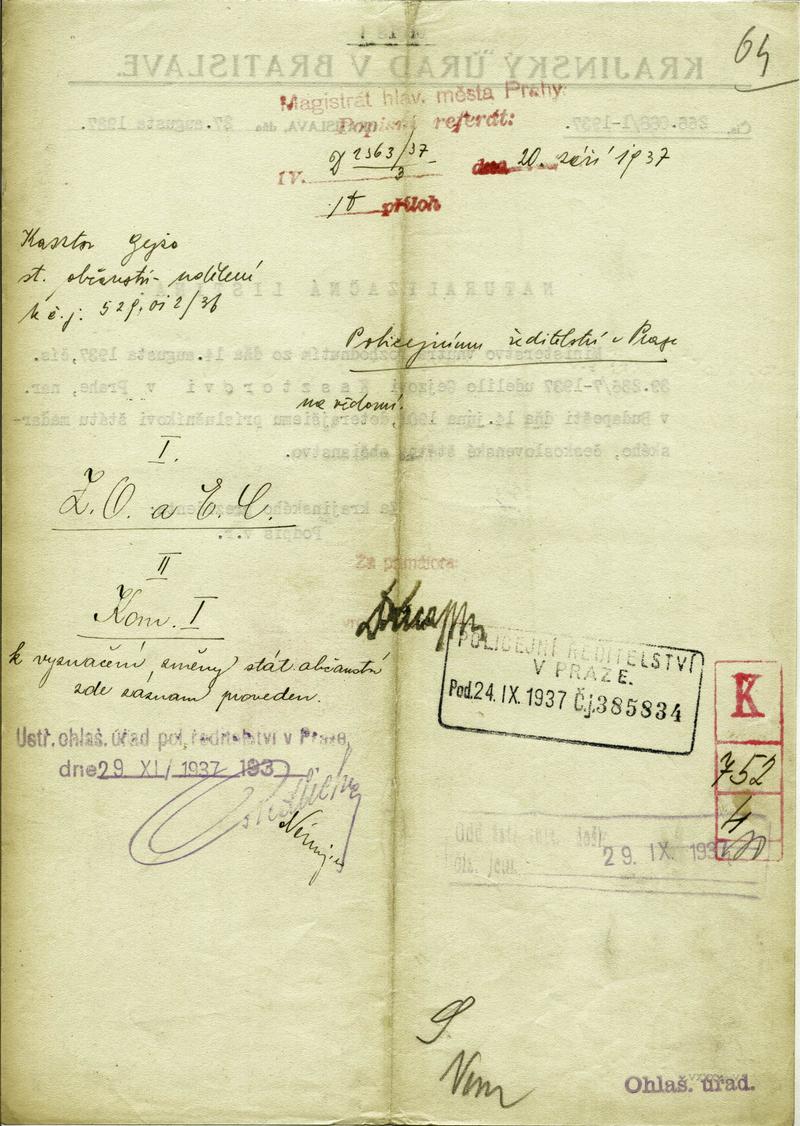 64
Magistrát hlav. města Prahy.
Popisní referát:
IV. D 2363/37 3 dne 20. září 1937
příloh
Kasztor Gejza
st. občanství - udělení
k č. j:
Policejnímu ředitelství v Praze
na vědomí.
I.
Z. O. a E. C.
II
Kom. I
k vyznačení změny stát. občanství
zde záznam proveden.
POLICEJNÍ ŘEDITELSTVÍ
V PRAZE.
Pod. 24. IX. 1937 Č.j. 385834
K
752
4
Ústř. ohlaš. úřad pol. ředitelství v Praze,
dne 29 XI/ 1937 193
29. IX. 1937
Ohlaš. úřad.
KRAJINSKÝ ÚRAD V BRATISLAVE.
Čís. 266.068/1-1937. BRATISLAVA, dňa 27. augusta 1937.
NATURALIZAČNÁ LISTINA
Ministerstvo vnútra rozhodnutím zo dňa 14. augusta 1937, čís.
udelilo Gejzovi Kasztorovi v Prahe, nar.
v Budapešti dňa 14. júna doterajšiemu príslušníkovi štátu maďar-
ského, československé štátne občianstvo.
Za krajinského prezidenta:
Podpis v.r.